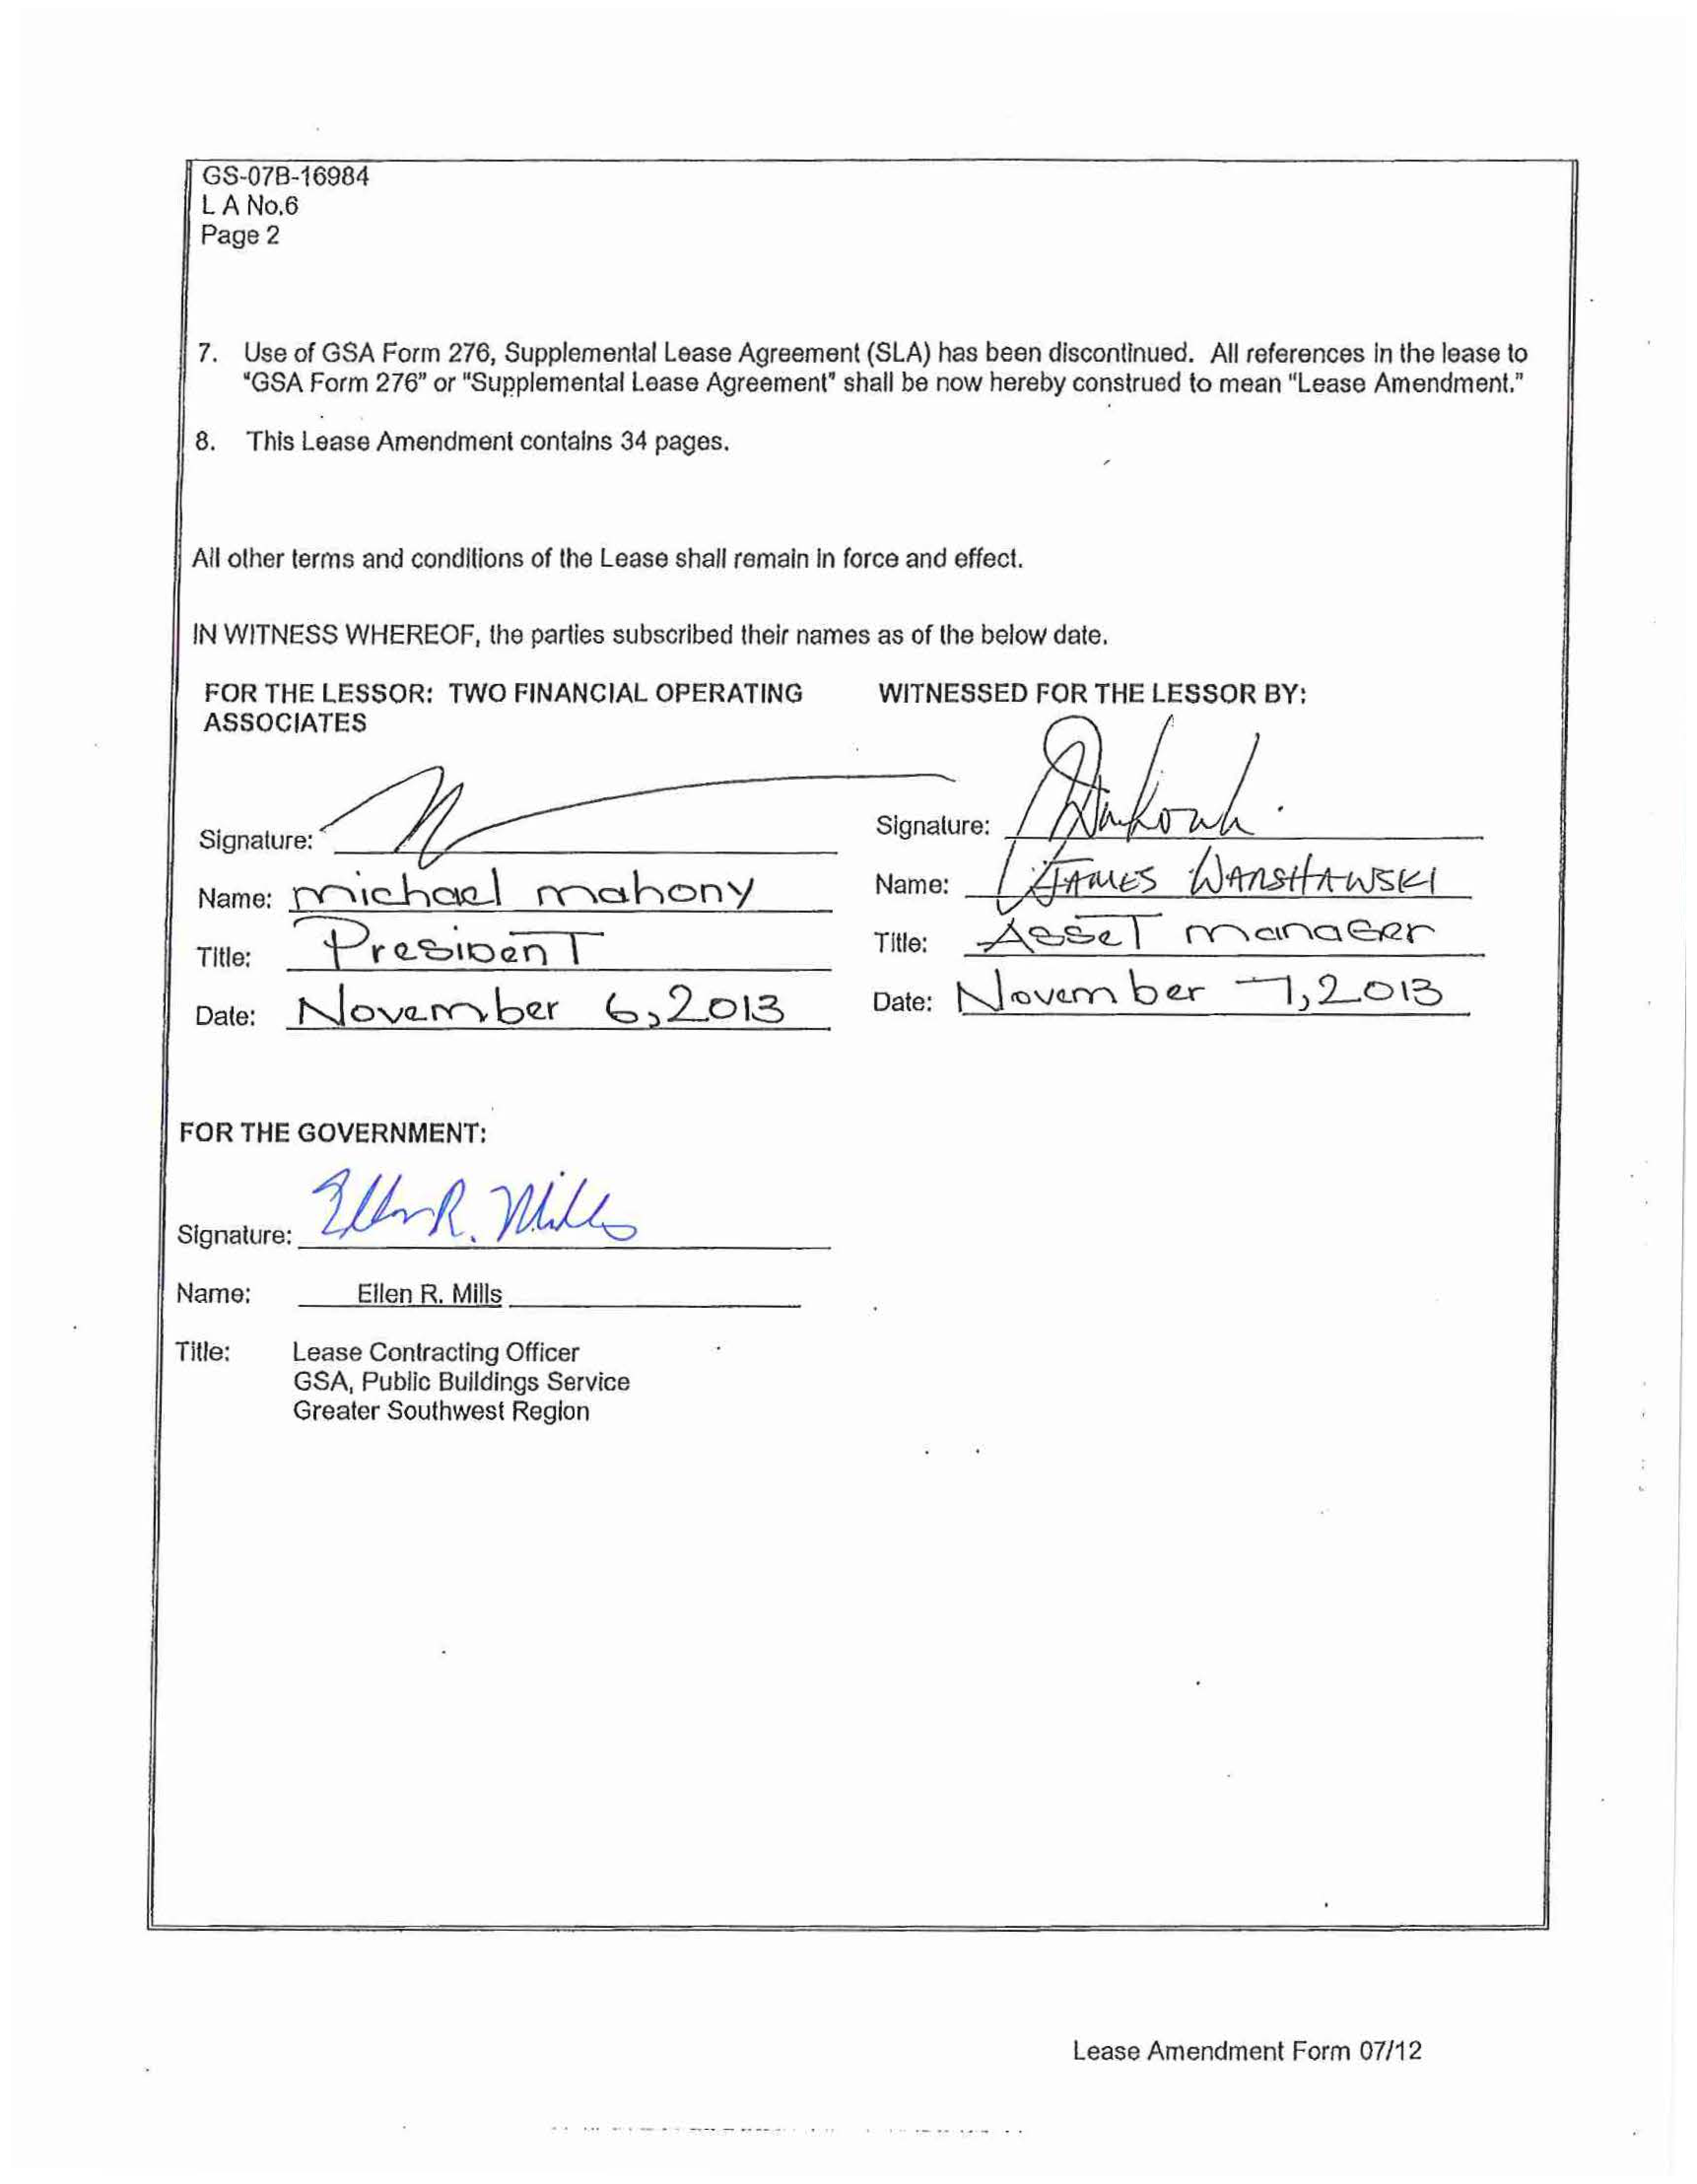 GS-07B-16984
L A No.6
Page 2
7. Use of GSA Form 276, Supplemental Lease Agreement (SLA) has been discontinued. All references in the lease to
"GSA Form 276" or "Supplemental Lease Agreement" shall be now hereby construed to mean "Lease Amendment."
8. This Lease Amendment contains 34 pages.
All other terms and conditions of the Lease shall remain in force and effect.
IN WITNESS WHEREOF, the parties subscribed their names as of the below date.
FOR THE LESSOR: TWO FINANCIAL OPERATING
ASSOCIATES
Signature:
Name: michael mahony
Title: President
Date: November 6, 2013
WITNESSED FOR THE LESSOR BY:
Signature:
Name: JAMES WARSHAWSKI
Title: Asset manager
Date: November 7, 2013
FOR THE GOVERNMENT:
Signature: Ellen R. Mills
Name: Ellen R. Mills
Title: Lease Contracting Officer
GSA, Public Buildings Service
Greater Southwest Region
Lease Amendment Form 07/12